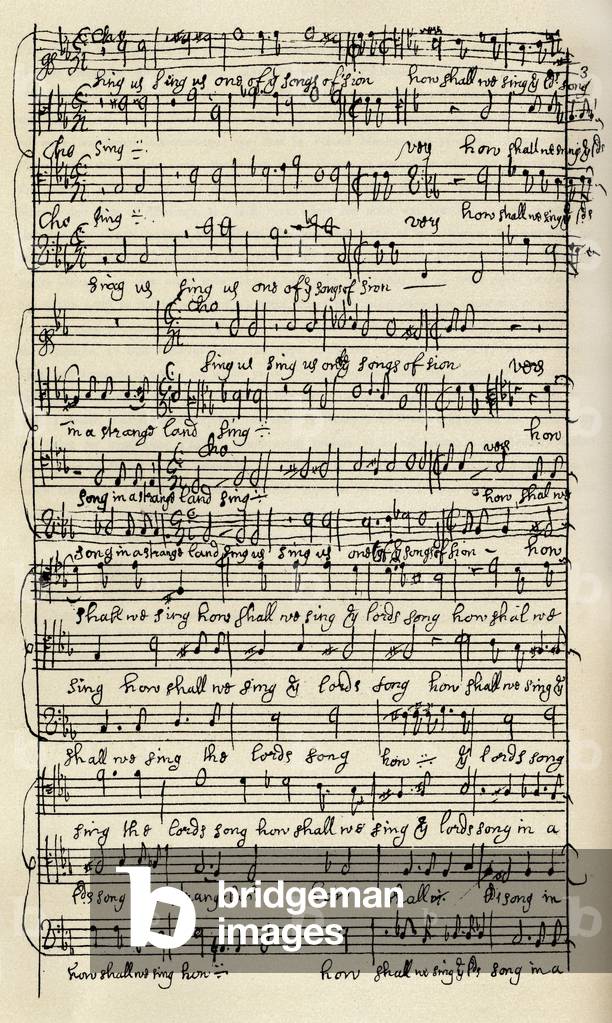 Cho
sing us sing us one of ye songs of sion how shall we sing ye lds song
3
Cho sing vers how shall we sing ye lds
Cho sing vers how shall we sing ye lds
sing us sing us one of ye songs of sion
Cho
sing us sing us one songs of sion vers
in a strange land sing how
Cho vers
song in a strange land sing how shal we
song in a strange land sing us sing us one of ye songs of sion how
shall we sing how shall we sing ye lords song how shal we
sing how shall we sing ye lords song how shall we sing ye
shall we sing the lords song how ye lords song
sing the lords song how shall we sing ye lords song in a
lds song lds song in
how shall we sing how how shall we sing ye lds song in a
b bridgeman
images